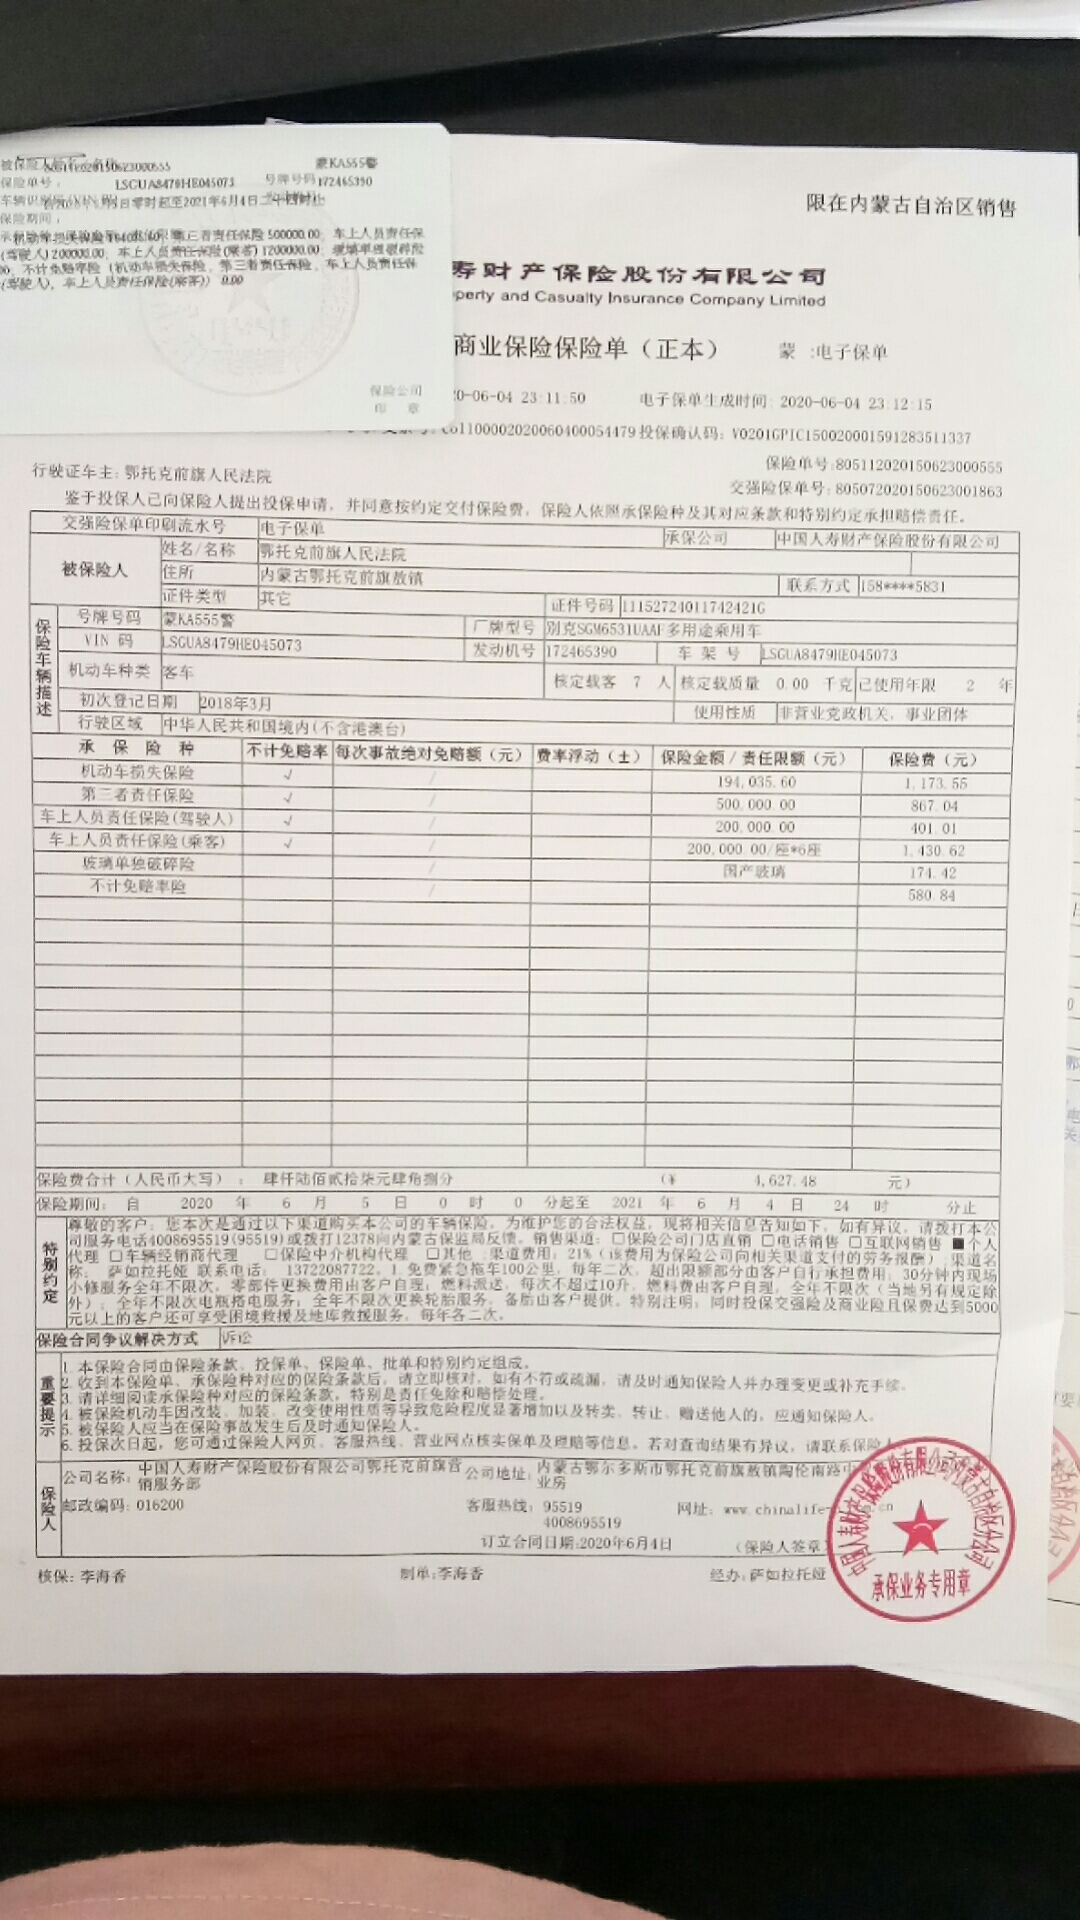 蒙KA555警
保险单号：
LSGUA8479HE045073
号牌号码
172465390
保险期间：
(驾驶人)200000.00，车上人员责任保险(乘客)1200000.00，玻璃单独破碎险
不计免赔率险（机动车损失保险，第三者责任保险，车上人员责任保险
(驾驶人)，车上人员责任保险(乘客)） 0.00
保险公司
印 章
限在内蒙古自治区销售
寿财产保险股份有限公司
perty and Casualty Insurance Company Limited
商业保险保险单（正本） 蒙 :电子保单
20-06-04 23:11:50 电子保单生成时间: 2020-06-04 23:12:15
投保确认码: V0201GPIC150020001591283511337
保险单号:805112020150623000555
行驶证车主: 鄂托克前旗人民法院
交强险保单号: 805072020150623001863
鉴于投保人已向保险人提出投保申请，并同意按约定交付保险费，保险人依照承保险种及其对应条款和特别约定承担赔偿责任。
交强险保单印刷流水号 电子保单 承保公司 中国人寿财产保险股份有限公司
被保险人 姓名/名称 鄂托克前旗人民法院
住所 内蒙古鄂托克前旗敖镇 联系方式 158****5831
证件类型 其它 证件号码 11152724011742421G
保险车辆描述 号牌号码 蒙KA555警 厂牌型号 别克SGM6531UAAF多用途乘用车
VIN 码 LSGUA8479HE045073 发动机号 172465390 车 架 号 LSGUA8479HE045073
机动车种类 客车 核定载客 7 人 核定载质量 0.00 千克 已使用年限 2 年
初次登记日期 2018年3月 使用性质 非营业党政机关、事业团体
行驶区域 中华人民共和国境内(不含港澳台)
承 保 险 种 不计免赔率 每次事故绝对免赔额（元） 费率浮动（±） 保险金额／责任限额（元） 保险费（元）
机动车损失保险 √ / 194,035.60 1,173.55
第三者责任保险 √ / 500,000.00 867.04
车上人员责任保险(驾驶人) √ / 200,000.00 401.01
车上人员责任保险(乘客) √ / 200,000.00/座*6座 1,430.62
玻璃单独破碎险 / 国产玻璃 174.42
不计免赔率险 / 580.84
保险费合计（人民币大写）： 肆仟陆佰贰拾柒元肆角捌分 （¥ 4,627.48 元）
保险期间: 自 2020 年 6 月 5 日 0 时 0 分起至 2021 年 6 月 4 日 24 时 分止
特别约定
尊敬的客户: 您本次是通过以下渠道购买本公司的车辆保险，为维护您的合法权益，现将相关信息告知如下，如有异议，请拨打本公
司服务电话4008695519(95519)或拨打12378向内蒙古保监局反馈。销售渠道: □保险公司门店直销 □电话销售 □互联网销售 ■个人
代理 □车辆经销商代理 □保险中介机构代理 □其他 渠道费用: 21%（该费用为保险公司向相关渠道支付的劳务报酬）;渠道名
称: 萨如拉托娅 联系电话: 13722087722。1.免费紧急拖车100公里，每年二次，超出限额部分由客户自行承担费用; 30分钟内现场
小修服务全年不限次，零部件更换费用由客户自理; 燃料派送，每次不超过10升，燃料费由客户自理，全年不限次（当地另有规定除
外）; 全年不限次电瓶搭电服务; 全年不限次更换轮胎服务，备胎由客户提供。特别注明: 同时投保交强险及商业险且保费达到5000
元以上的客户还可享受困境救援及地库救援服务，每年各二次。
保险合同争议解决方式 诉讼
重要提示
1. 本保险合同由保险条款、投保单、保险单、批单和特别约定组成。
2. 收到本保险单、承保险种对应的保险条款后，请立即核对，如有不符或疏漏，请及时通知保险人并办理变更或补充手续。
3. 请详细阅读承保险种对应的保险条款，特别是责任免除和赔偿处理。
4. 被保险机动车因改装、加装、改变使用性质等导致危险程度显著增加以及转卖、转让、赠送他人的，应通知保险人。
5. 被保险人应当在保险事故发生后及时通知保险人。
6. 投保次日起，您可通过保险人网页、客服热线、营业网点核实保单及理赔等信息。若对查询结果有异议，请联系保险人
保险人
公司名称: 中国人寿财产保险股份有限公司鄂托克前旗营销服务部 公司地址: 内蒙古鄂尔多斯市鄂托克前旗敖镇陶伦南路中
业房
邮政编码: 016200 客服热线: 95519 网址: www.chinalife-
4008695519
订立合同日期:2020年6月4日 （保险人签章）
核保: 李海香 制单:李海香 经办: 萨如拉托娅
承保业务专用章